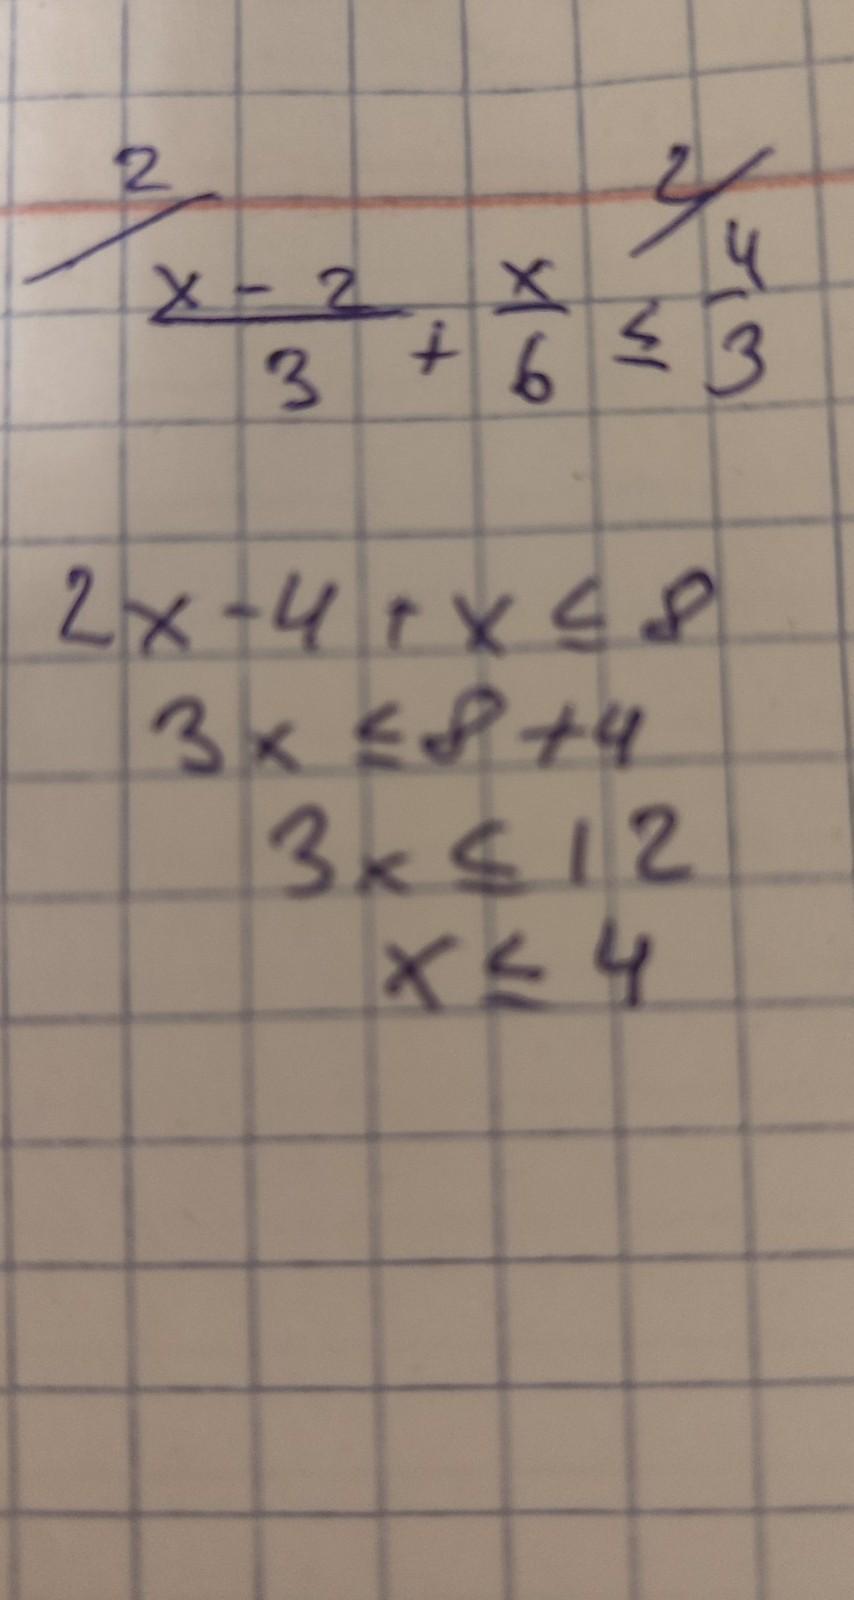 2/ (x - 2)/3 + x/6 ≤ 2/ 4/3
2x - 4 + x ≤ 8
3x ≤ 8 + 4
3x ≤ 12
x ≤ 4